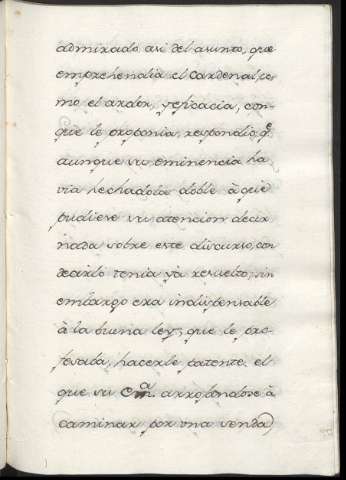 admirado asi del asunto, que
emprehendia el Cardenal, co
mo el ardor, y eficacia, con-
que le proponia, respondio, q.e
aunque su eminencia ha
via hechadola doble à que
pudiese su atencion decir
nada sobre este discurso, con
dexarlo tenia ya resuelto, sin
embargo era indispensable
à la buena ley, que le pro-
fesaba, hacerle patente el
que su Em.a arrojandose à
caminar por una senda